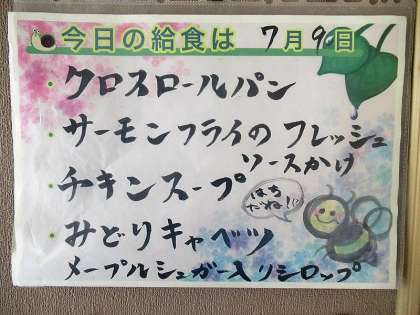 今日の給食は 7月9日
・クロスロールパン
・サーモンフライの フレッシュ
ソースかけ
・チキンスープ
はち
だね!!
・みどりキャベツ
メープルシュガー入りシロップ